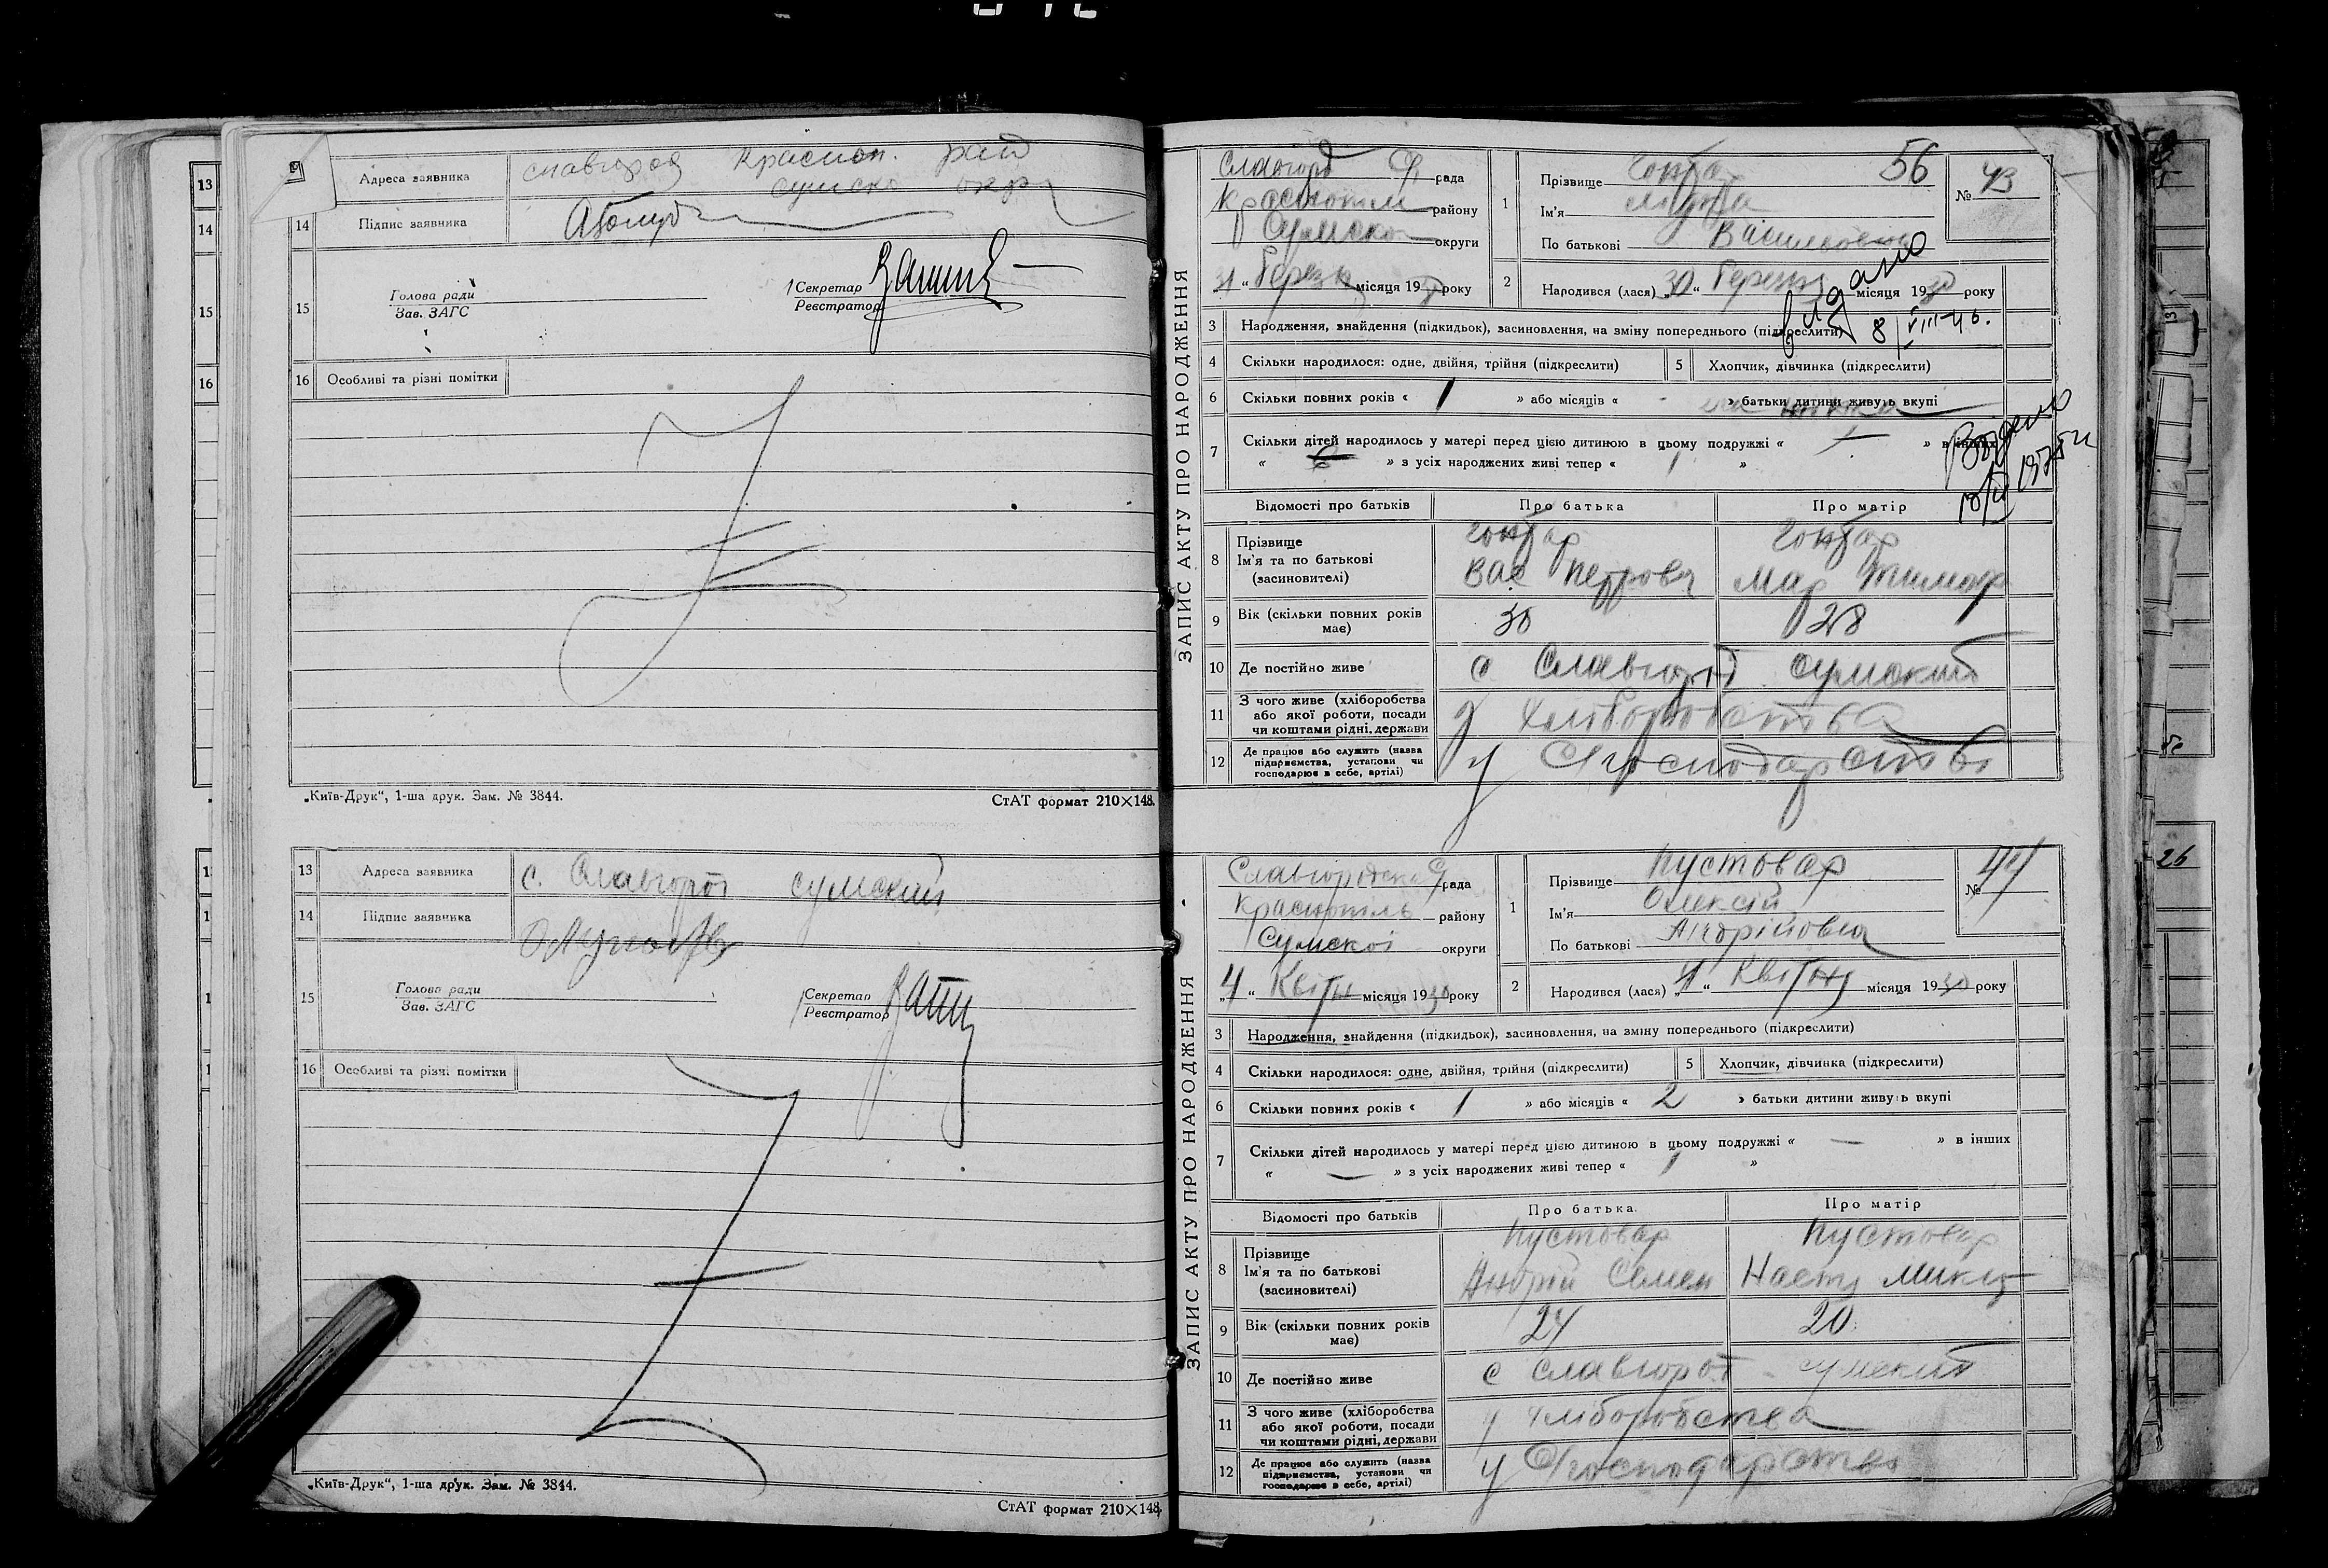 13
Адреса заявника
славгород Краспоп. рай
сумско окр
14
Підпис заявника
15
Голова ради
Зав. ЗАГС
Секретар
Реєстратор
16
Особливі та різні помітки
„Київ-Друк“, 1-ша друк. Зам. № 3844.
СтАТ формат 210×148.
13
Адреса заявника
с. Славгород сумский
14
Підпис заявника
15
Голова ради
Зав. ЗАГС
Секретар
Реєстратор
16
Особливі та різні помітки
„Київ-Друк“, 1-ша друк. Зам. № 3844.
СтАТ формат 210×148.
ЗАПИС АКТУ ПРО НАРОДЖЕННЯ
рада
району
Сумской округи
31 “ березн місяця 1930 року
56
№ 43
1
Прізвище Гонтар
Ім'я
По батькові Васильовна
2
Народився (лася) „30“ березня місяця 1930 року
видано
8/VIII-46.
3
Народження, знайдення (підкидьок), засиновлення, на зміну попереднього (підкреслити)
4
Скільки народилося: одне, двійня, трійня (підкреслити)
5
Хлопчик, дівчинка (підкреслити)
6
Скільки повних років « 1 » або місяців « - » батьки дитини живуть вкупі
7
Скільки дітей народилось у матері перед цією дитиною в цьому подружжі « — » в інших
« » з усіх народжених живі тепер « 1 »
Відомості про батьків
Про батька
Про матір
8
Прізвище
Ім'я та по батькові
(засиновителі)
Гонтар
Вас Петрович
Гонтар
Мар Тимоф
9
Вік (скільки повних років має)
30
28
10
Де постійно живе
с Славгород сумский
11
З чого живе (хліборобства
або якої роботи, посади
чи коштами рідні, держави
з хліборобства
12
Де працює або служить (назва
підприємства, установи чи
господарює в себе, артілі)
у С/господарстві
ЗАПИС АКТУ ПРО НАРОДЖЕННЯ
Славгородска С/рада
Краснопіль району
Сумскоі округи
„4“ Квітн місяця 1930 року
№ 44
1
Прізвище Пустовар
Ім'я Олексій
По батькові Андрійович
2
Народився (лася) „4“ Квітня місяця 1930 року
3
Народження, знайдення (підкидьок), засиновлення, на зміну попереднього (підкреслити)
4
Скільки народилося: одне, двійня, трійня (підкреслити)
5
Хлопчик, дівчинка (підкреслити)
6
Скільки повних років « 1 » або місяців « 2 » батьки дитини живуть вкупі
7
Скільки дітей народилось у матері перед цією дитиною в цьому подружжі « — » в інших
« — » з усіх народжених живі тепер « 1 »
Відомості про батьків
Про батька.
Про матір
8
Прізвище
Ім'я та по батькові
(засиновителі)
Пустовар
Андрій Семен
Пустовар
Настя Микит
9
Вік (скільки повних років має)
24
20
10
Де постійно живе
с Славгород - сумский
11
З чого живе (хліборобства
або якої роботи, посади
чи коштами рідні, держави
з хліборобства
12
Де працює або служить (назва
підприємства, установи чи
господарює в себе, артілі)
у С/господарстві
26